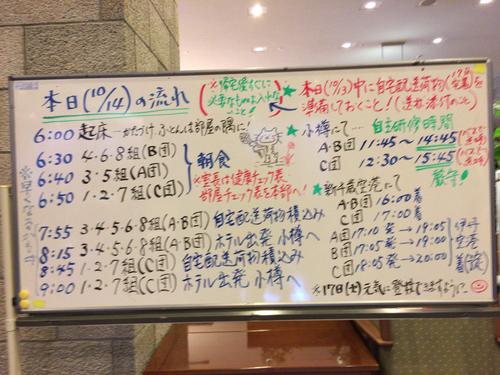 本日(10/14)の流れ
6:00 起床 ―かたづけ。ふとんは部屋の隅に!
6:30 4・6・8組(B団)
6:40 3・5組(A団)
6:50 1・2・7組(C団)
朝食
※室長は健康チェック表
7:55 3・4・5・6・8組(A・B団) 自宅配送荷物積込み
8:15 3・4・5・6・8組(A・B団) ホテル出発 小樽へ
8:45 1・2・7組(C団) 自宅配送荷物積込み
9:00 1・2・7組(C団) ホテル出発 小樽へ
※帰宅後すぐに
必要なものは入れない
こと!
本日(10/13)中に自宅配送荷物を
準備しておくこと!
★小樽にて… 自主研修時間
A・B団 11:45~14:45
C団 12:30~15:45
厳守!
★新千歳空港にて
A・B団 16:00着
C団 17:00着
A団 17:10発→19:05
B団 17:05発→19:00
C団 18:05発→20:00
伊丹
空港
着(予定)
※17日(土)元気に登校できますように…